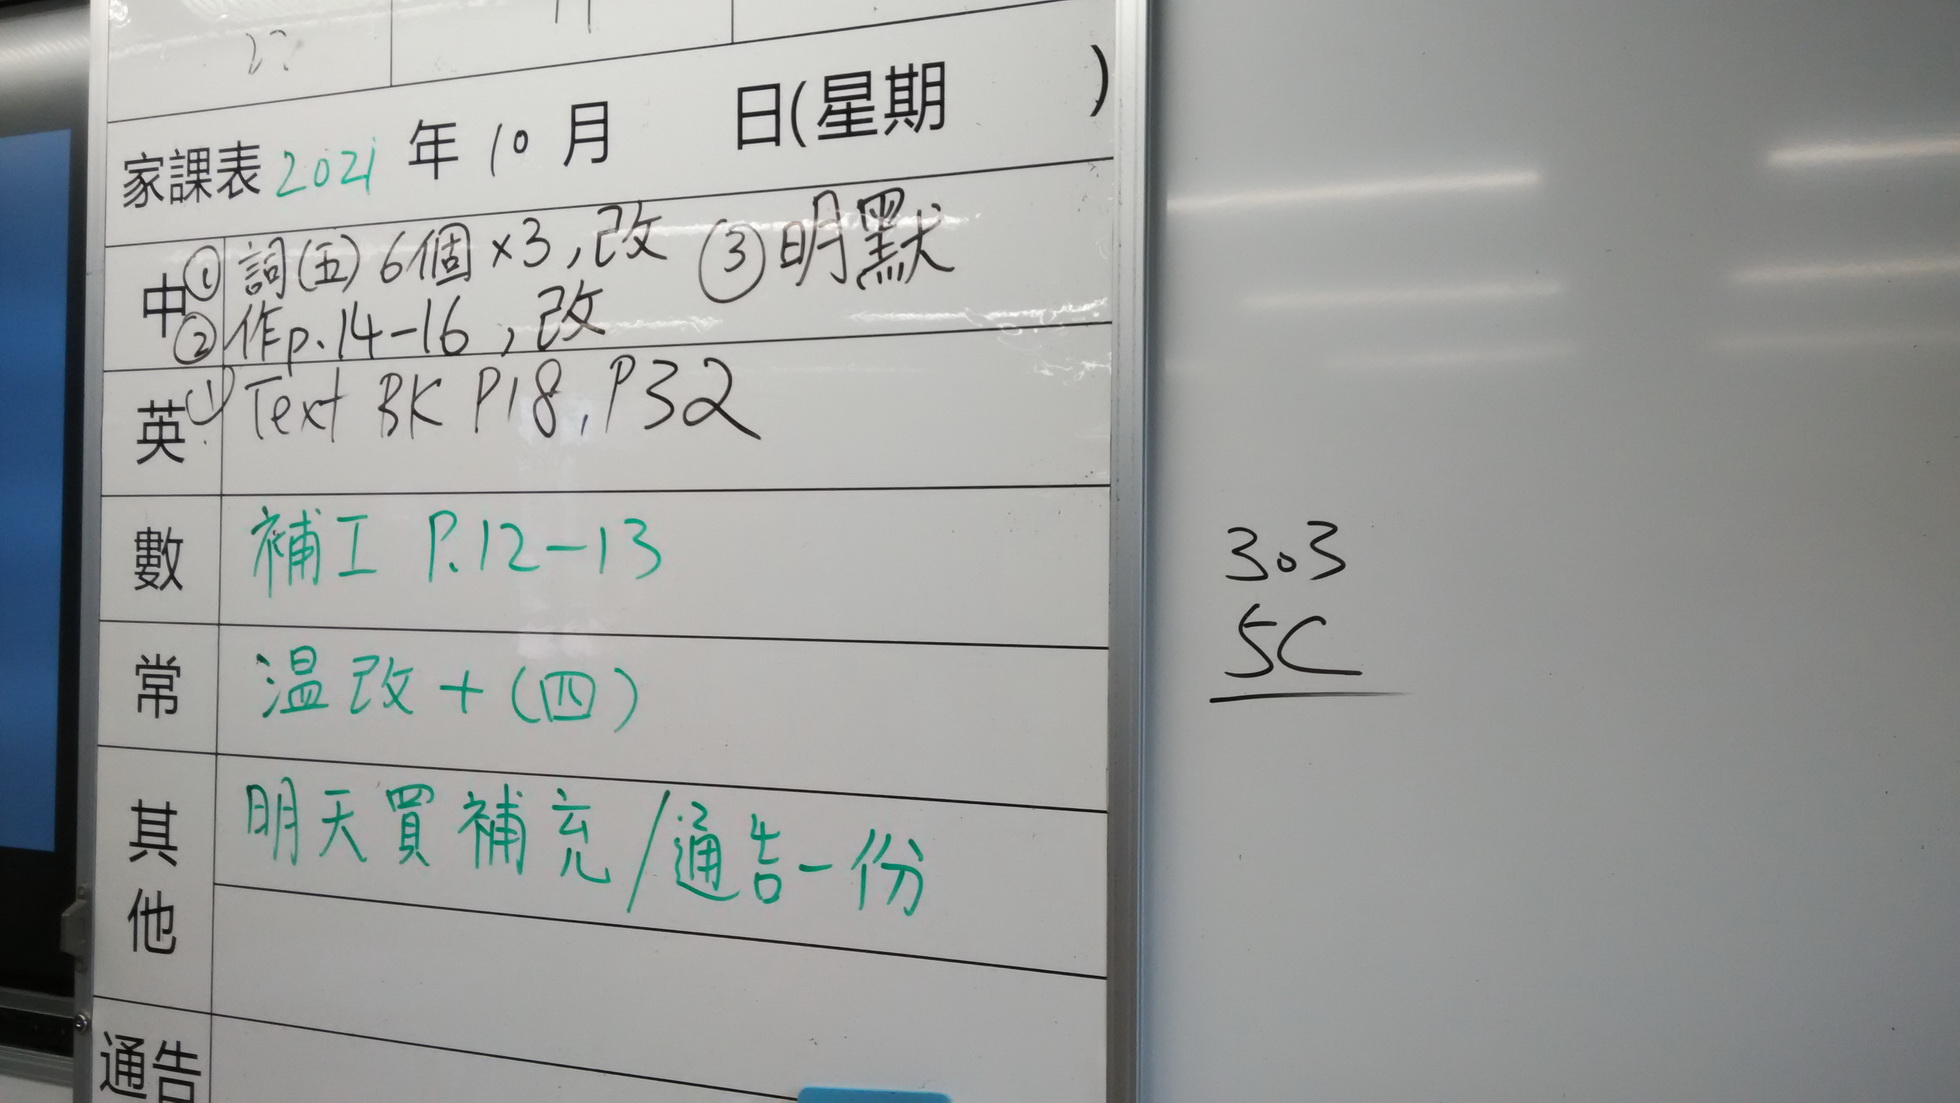 家課表 2021 年 10 月 日(星期 )
中 ① 詞(五) 6個 ×3, 改 ③ 明默
② 作p.14-16, 改
英 ① Text BK P18, P32
數 補工 P.12-13
常 溫改 + (四)
其他 明天買補充/通告一份
通告
303
5C